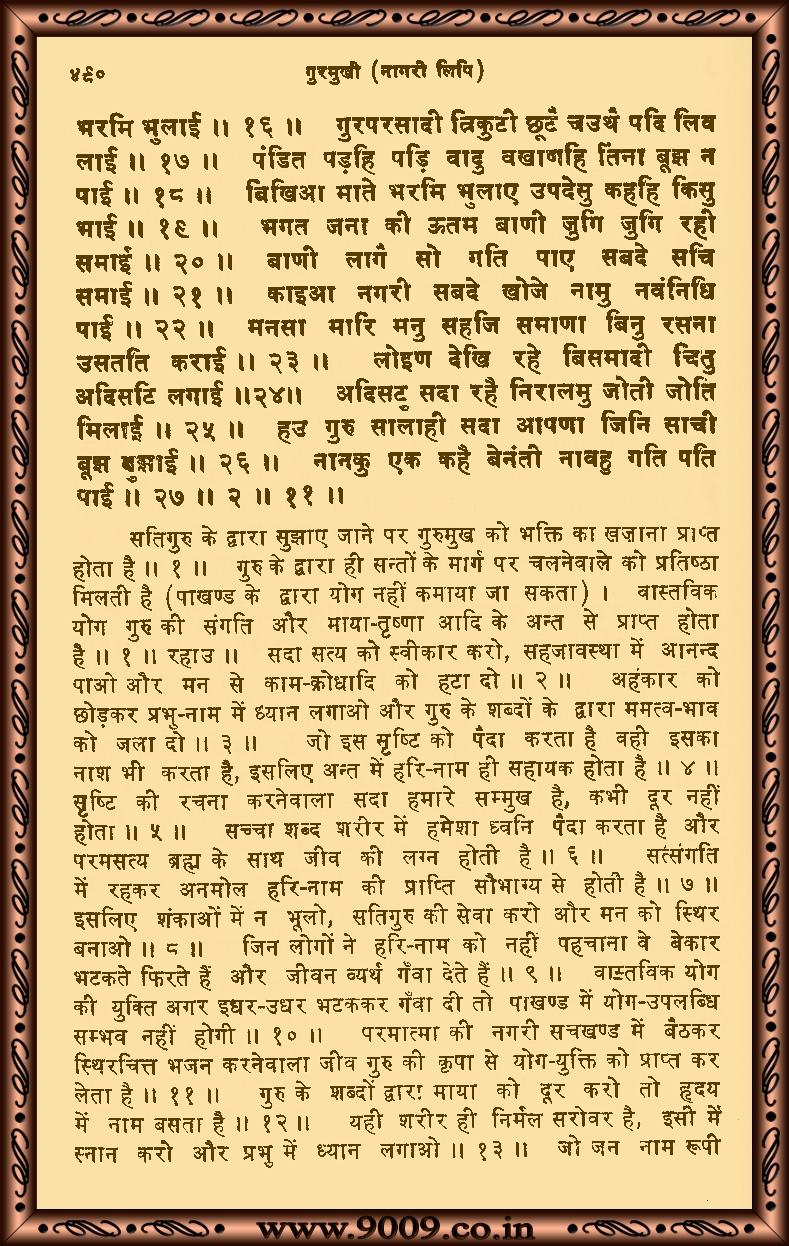 ४९०
गुरमुखी (नागरी लिपि)
भरमि भुलाई ॥ १६ ॥ गुरपरसादी त्रिकुटी छूटै चउथै पदि लिव
लाई ॥ १७ ॥ पंडित पड़हि पड़ि वादु वखाणहि तिंना बूझ न
पाई ॥ १८ ॥ बिखिआ माते भरमि भुलाए उपदेसु कहहि किसु
भाई ॥ १९ ॥ भगत जना की ऊतम बाणी जुगि जुगि रही
समाई ॥ २० ॥ बाणी लागै सो गति पाए सबदे सचि
समाई ॥ २१ ॥ काइआ नगरी सबदे खोजे नामु नवंनिधि
पाई ॥ २२ ॥ मनसा मारि मनु सहजि समाणा बिनु रसना
उसतति कराई ॥ २३ ॥ लोइण देखि रहे बिसमादी चितु
अदिसटि लगाई ॥२४॥ अदिसटु सदा रहै निरालमु जोती जोति
मिलाई ॥ २५ ॥ हउ गुरु सालाही सदा आपणा जिनि साची
बूझ बुझाई ॥ २६ ॥ नानकु एक कहै बेनंती नावहु गति पति
पाई ॥ २७ ॥ २ ॥ ११ ॥
सतिगुरु के द्वारा सुझाए जाने पर गुरुमुख को भक्ति का खज़ाना प्राप्त
होता है ॥ १ ॥ गुरु के द्वारा ही सन्तों के मार्ग पर चलनेवाले को प्रतिष्ठा
मिलती है (पाखण्ड के द्वारा योग नहीं कमाया जा सकता) । वास्तविक
योग गुरु की संगति और माया-तृष्णा आदि के अन्त से प्राप्त होता
है ॥ १ ॥ रहाउ ॥ सदा सत्य को स्वीकार करो, सहजावस्था में आनन्द
पाओ और मन से काम-क्रोधादि को हटा दो ॥ २ ॥ अहंकार को
छोड़कर प्रभु-नाम में ध्यान लगाओ और गुरु के शब्दों के द्वारा ममत्व-भाव
को जला दो ॥ ३ ॥ जो इस सृष्टि को पैदा करता है वही इसका
नाश भी करता है, इसलिए अन्त में हरि-नाम ही सहायक होता है ॥ ४ ॥
सृष्टि की रचना करनेवाला सदा हमारे सम्मुख है, कभी दूर नहीं
होता ॥ ५ ॥ सच्चा शब्द शरीर में हमेशा ध्वनि पैदा करता है और
परमसत्य ब्रह्म के साथ जीव की लग्न होती है ॥ ६ ॥ सत्संगति
में रहकर अनमोल हरि-नाम की प्राप्ति सौभाग्य से होती है ॥ ७ ॥
इसलिए शंकाओं में न भूलो, सतिगुरु की सेवा करो और मन को स्थिर
बनाओ ॥ ८ ॥ जिन लोगों ने हरि-नाम को नहीं पहचाना वे बेकार
भटकते फिरते हैं और जीवन व्यर्थ गँवा देते हैं ॥ ९ ॥ वास्तविक योग
की युक्ति अगर इधर-उधर भटककर गँवा दी तो पाखण्ड में योग-उपलब्धि
सम्भव नहीं होगी ॥ १० ॥ परमात्मा की नगरी सचखण्ड में बैठकर
स्थिरचित्त भजन करनेवाला जीव गुरु की कृपा से योग-युक्ति को प्राप्त कर
लेता है ॥ ११ ॥ गुरु के शब्दों द्वारा माया को दूर करो तो हृदय
में नाम बसता है ॥ १२ ॥ यही शरीर ही निर्मल सरोवर है, इसी में
स्नान करो और प्रभु में ध्यान लगाओ ॥ १३ ॥ जो जन नाम रूपी
www.9009.co.in